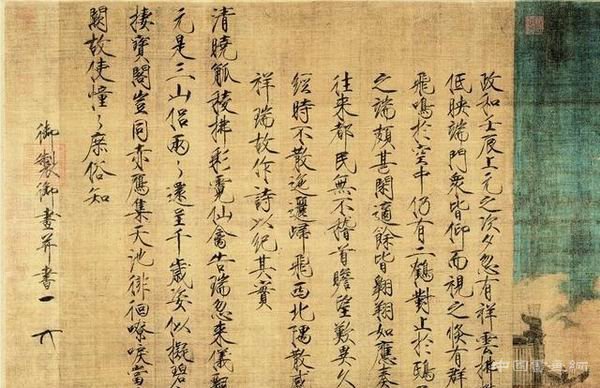 政和壬辰上元之次夕忽有祥雲拂
低映端門衆皆仰而視之倐有群
飛鳴於空中仍有二鶴對止於鴟
之端頗甚閑適餘皆翱翔如應奏
往來都民無不稽首瞻望歎異久
經時不散迤邐歸飛西北隅散
祥瑞故作詩以紀其實
清曉觚稜拂彩霓仙禽告瑞忽來儀
元是三山侶兩〻還呈千歲姿似擬碧
棲寶閣豈同赤鴈集天池徘徊嘹唳當
闕故使憧〻庶俗知
御製御畫并書